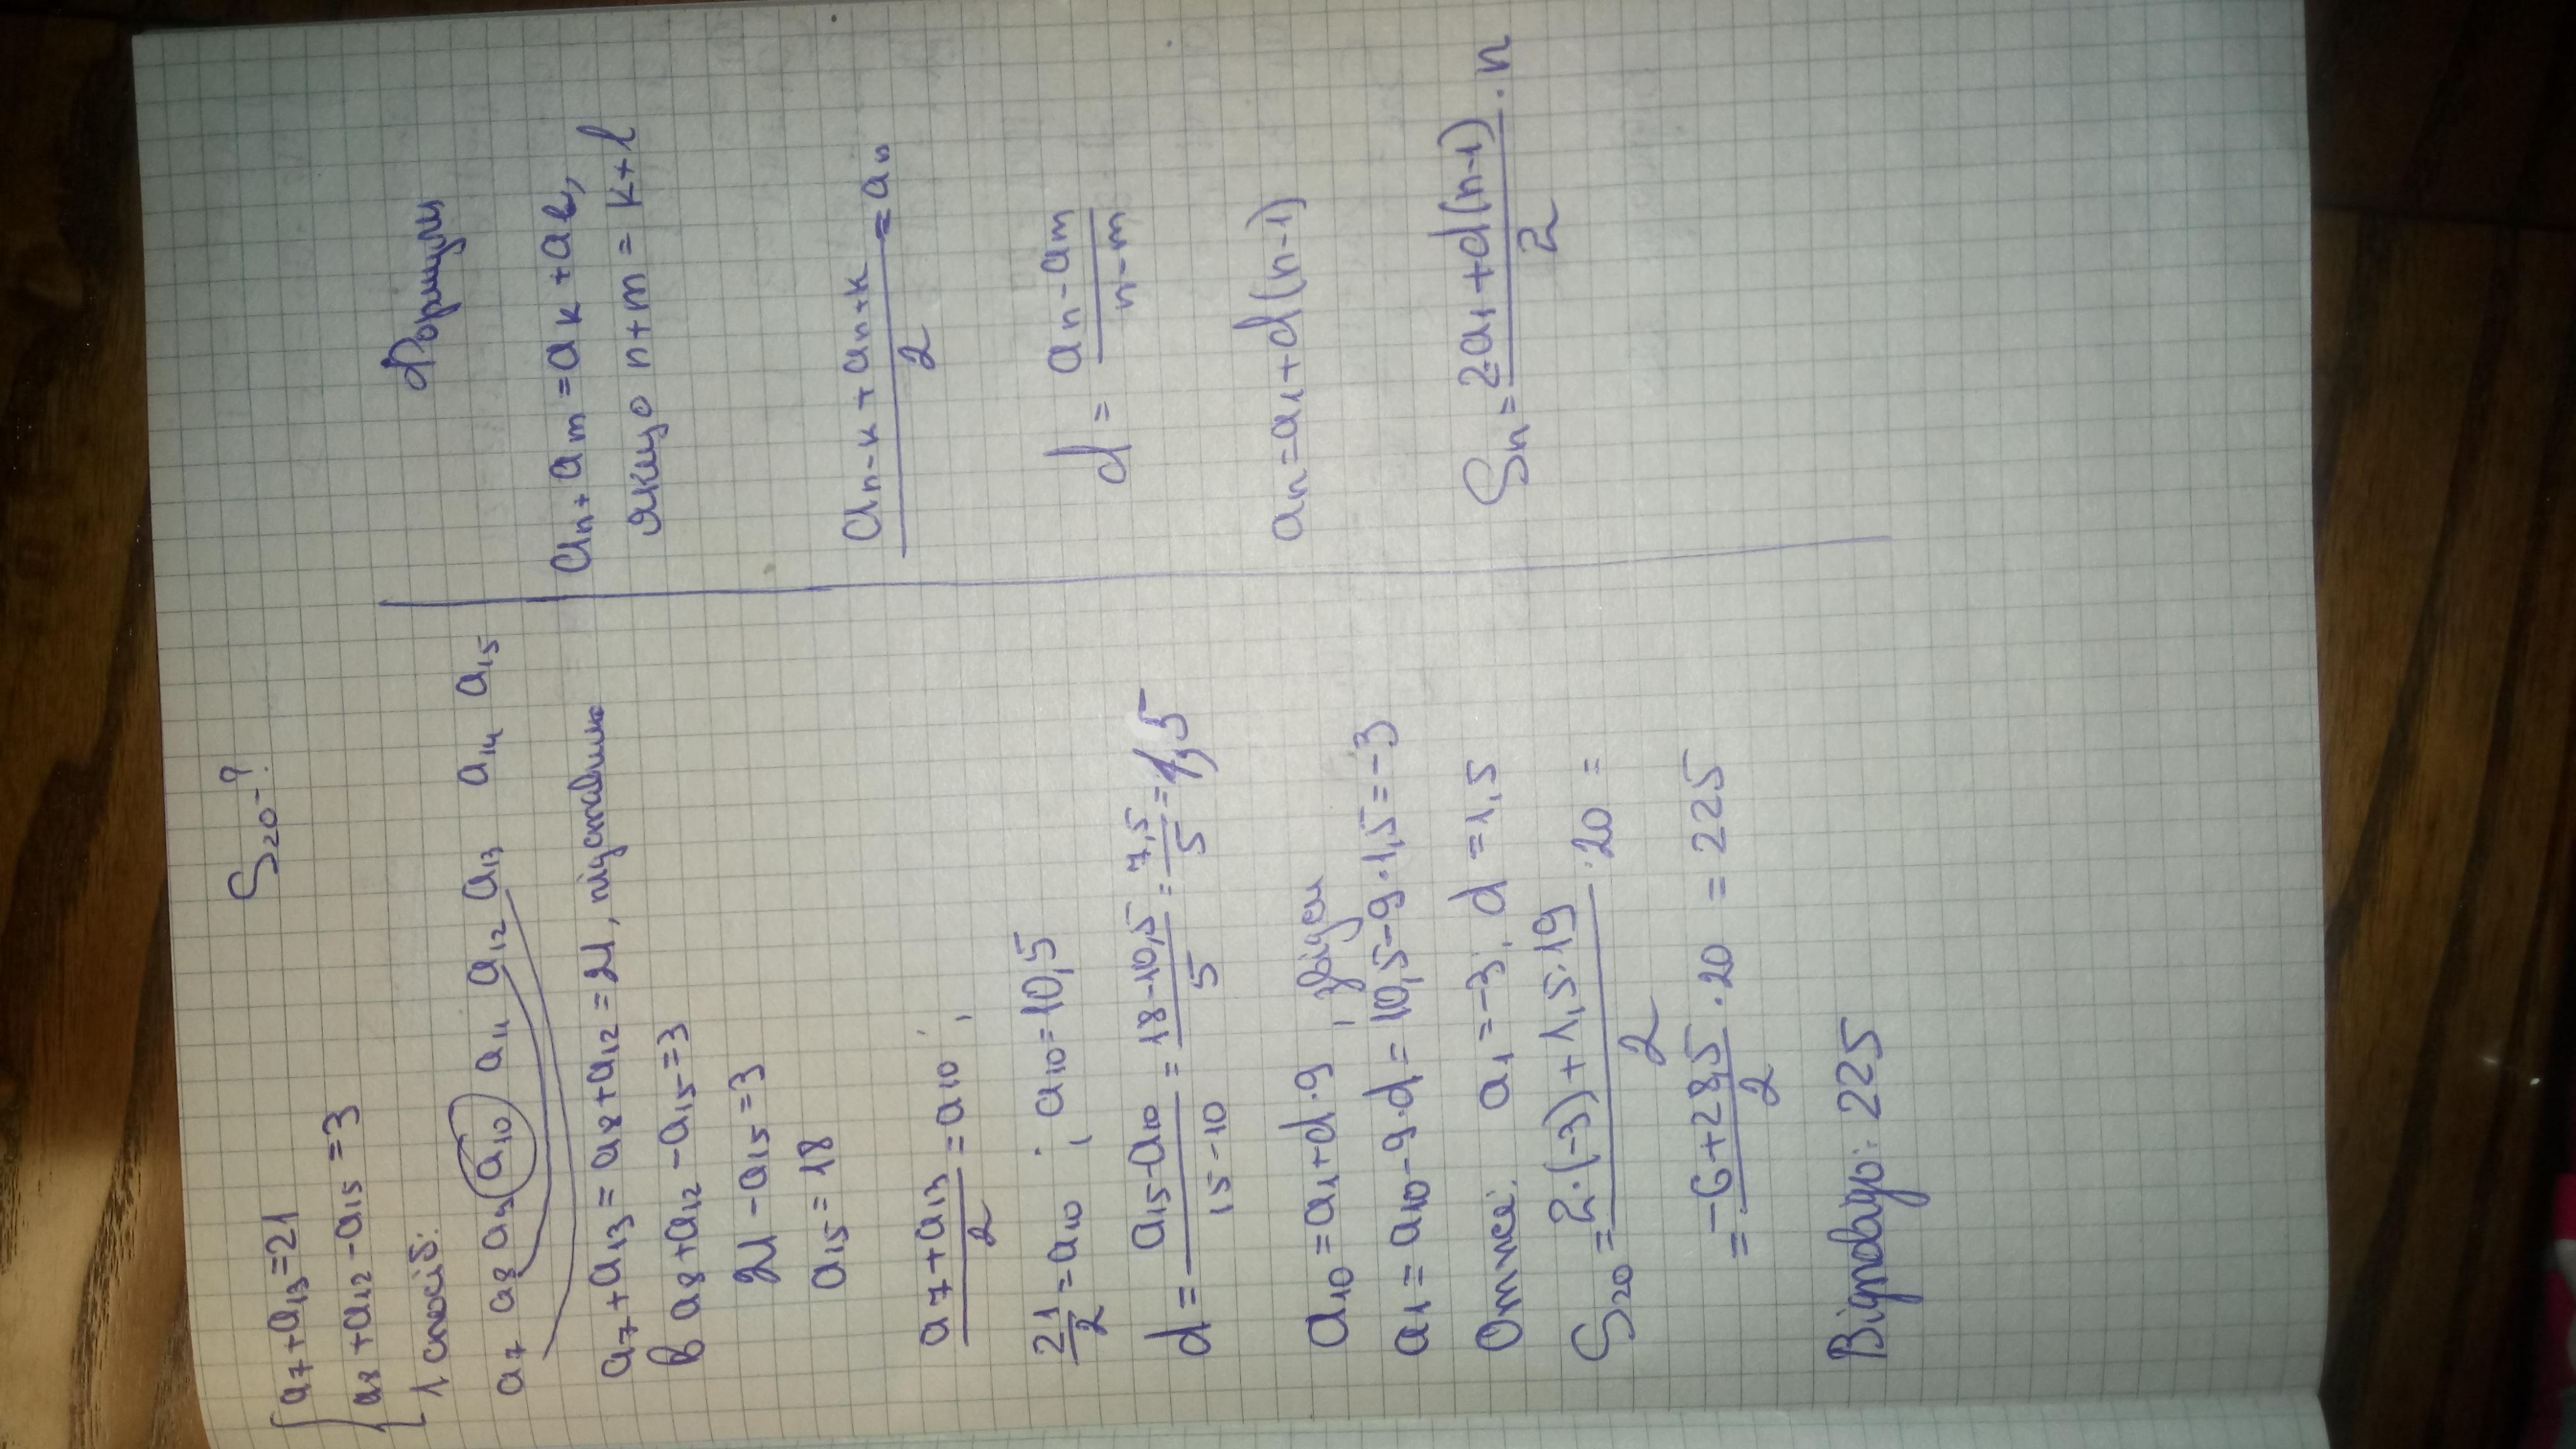 S₂₀-?
{a₇+a₁₃=21
{a₈+a₁₂-a₁₅=3
1 спосіб:
a₇ a₈ a₉ a₁₀ a₁₁ a₁₂ a₁₃ a₁₄ a₁₅
a₇+a₁₃=a₈+a₁₂=21, підставимо
в a₈+a₁₂-a₁₅=3
21-a₁₅=3
a₁₅=18
(a₇+a₁₃)/2=a₁₀;
21/2=a₁₀; a₁₀=10,5
d=(a₁₅-a₁₀)/(15-10)=(18-10,5)/5=7,5/5=1,5
a₁₀=a₁+d·9, звідси
a₁=a₁₀-9·d=10,5-9·1,5=-3
Отже: a₁=-3, d=1,5
S₂₀=(2·(-3)+1,5·19)/2·20=
=(-6+28,5)/2·20=225
Відповідь: 225
Формули
aₙ+aₘ=aₖ+aₗ,
якщо n+m=k+l
(aₙ₋ₖ+aₙ₊ₖ)/2=aₙ
d=(aₙ-aₘ)/(n-m)
aₙ=a₁+d(n-1)
Sₙ=(2a₁+d(n-1))/2·n